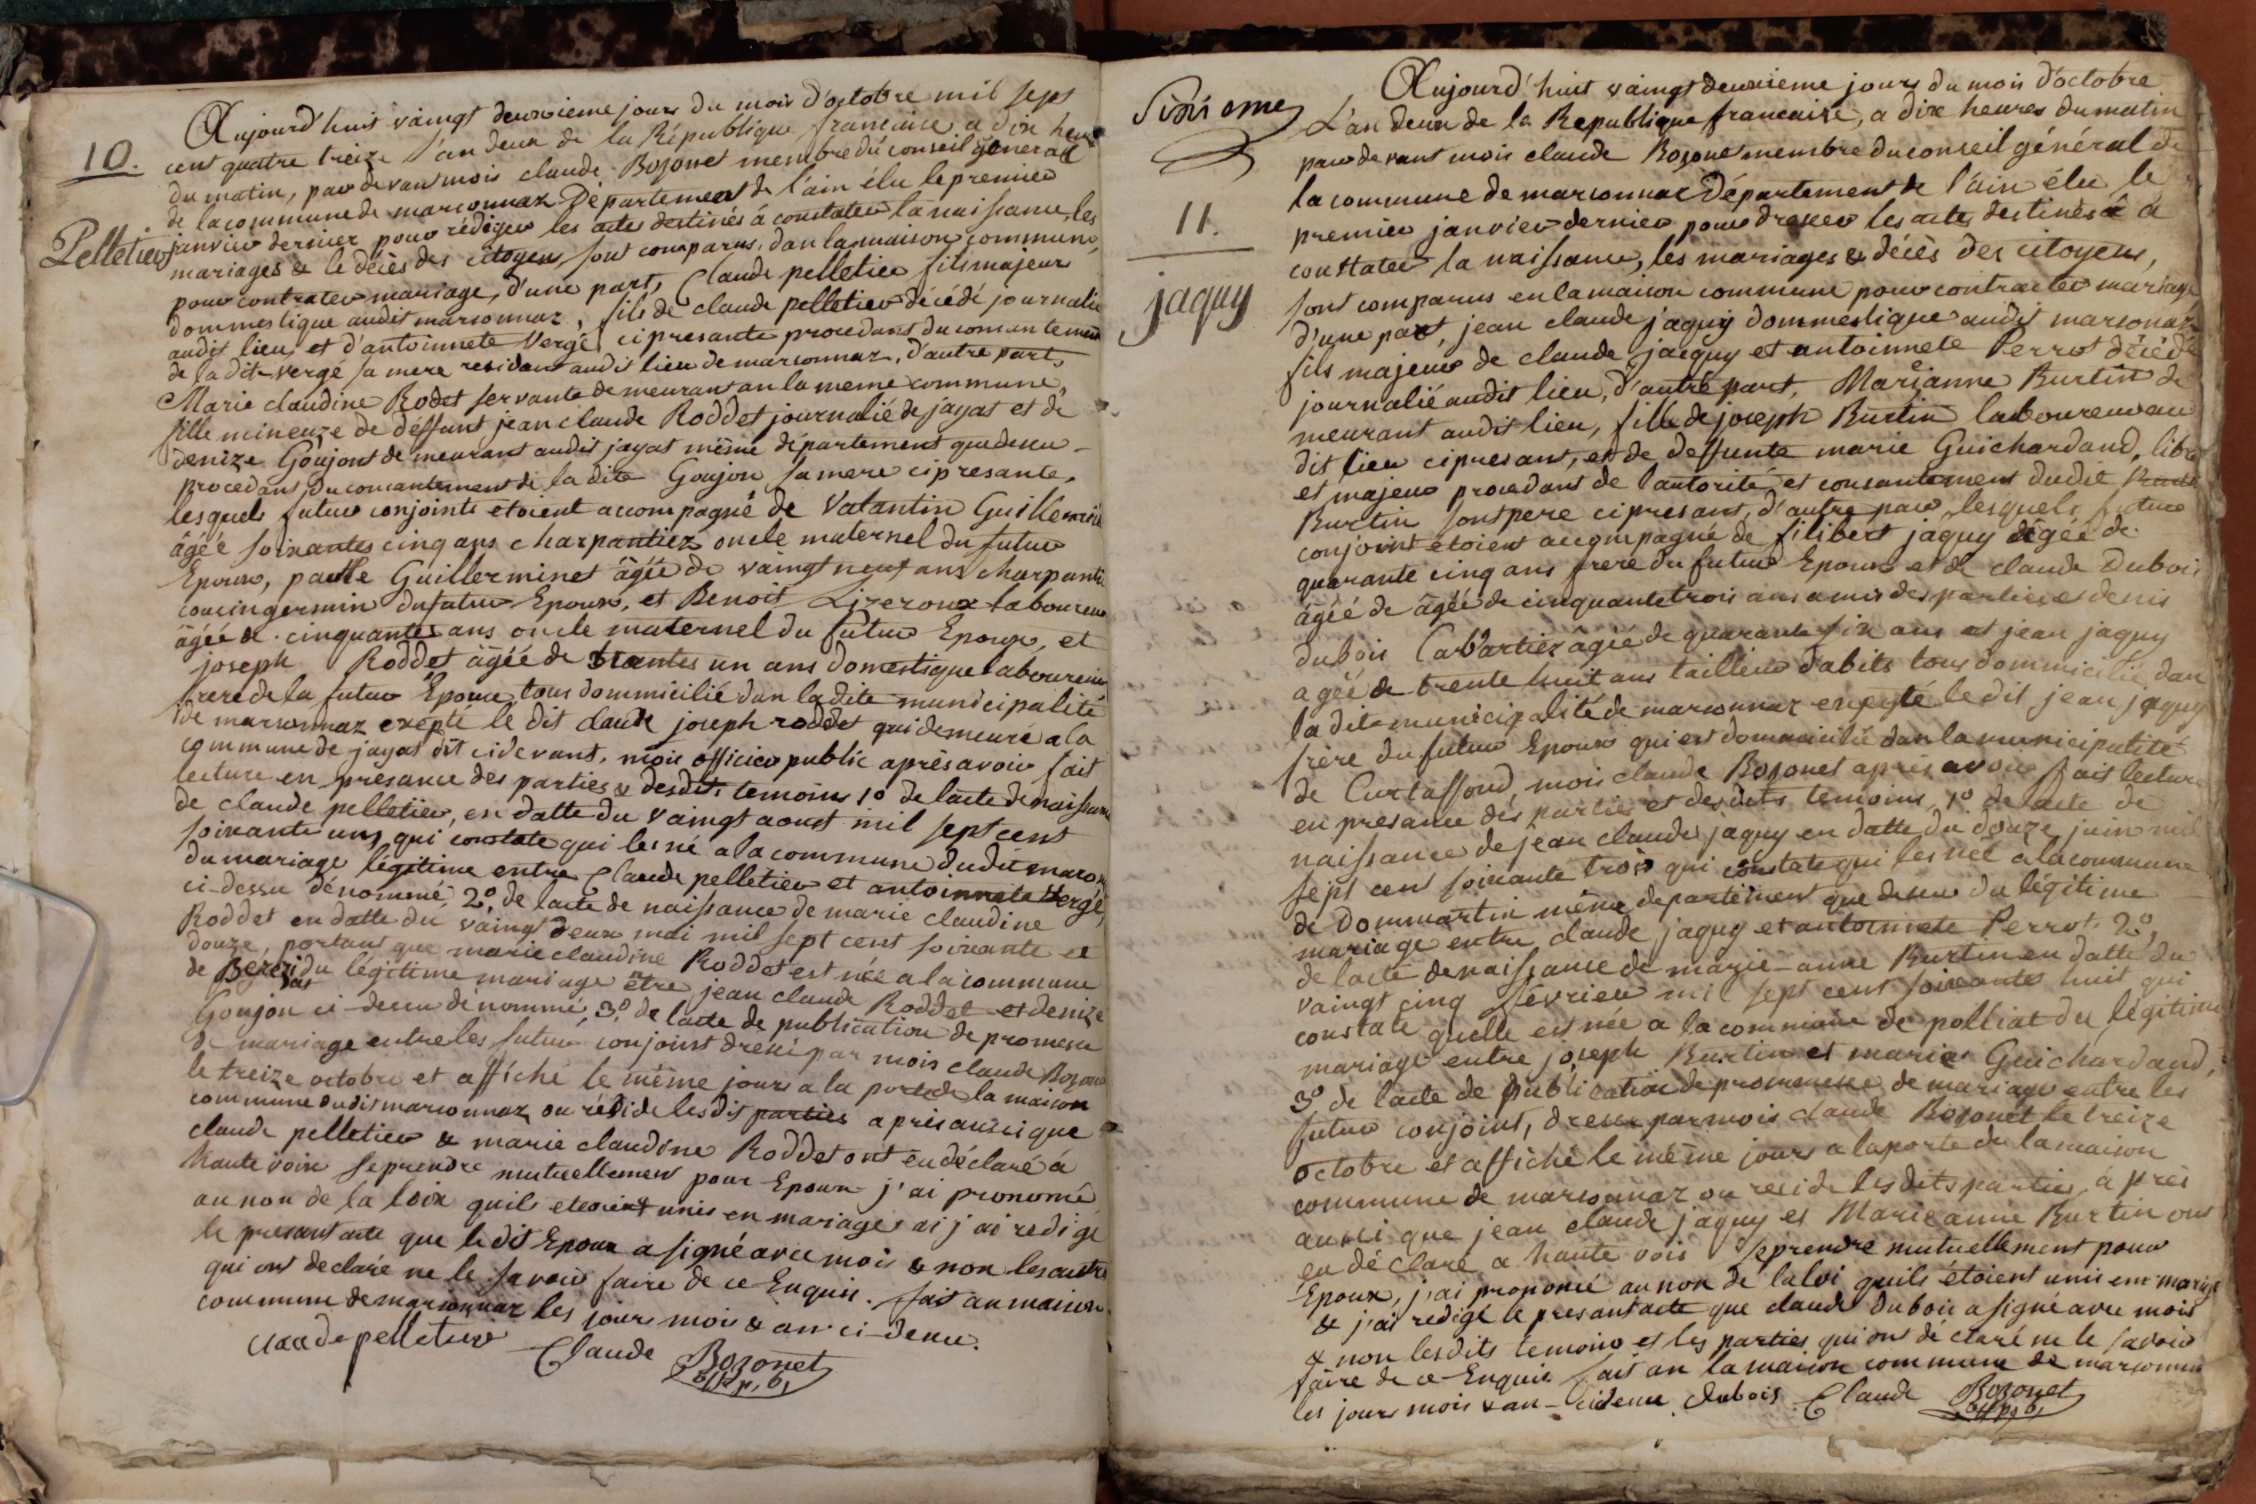 10.
Pelletier
Aujourd'huit vaingt deuxieme jours du mois d'octobre mil sept
cent quatre treize l'an deux de la République francaise a dix heure
du matin, par devant mois claude Bozonet membre du conseil géneral
de la commune de marsonnaz Département de l'ain élu le premier
janvier dernier pour rédiger les actes destinés á constater la naissance, les
mariages & le décès des citoyens, sont comparus dan la maison commune,
pour contrater mariage, d'une part, Claude pelletier fils majeur
dommestique audit marsonnaz, fils de claude pelletier décédé journalie
audit lieu et d'antoinnete Vergé cipresante procedant du consantement
de la dite vergé sa mere residant audit lieu de marsonnaz, d'autre part,
Marie claudine Rodet servante de meurant an la meme commune,
fille mineuze de deffunt jean claude Roddet journalié de jayat et de
denize Goujont de meurant audit jayat même département que dessu
procedant du consantement de la dite Goujon sa mere cipresante,
lesquels futur conjoints étoient accompagné de Valantin Guillermin
âgéé soixantes cinq ans charpantiez oncle maternel du futur
Epoux, paule Guillerminet âgéé de vaingt neuf ans charpantie
coucin germin du futur Epoux, et Benoit Lizeroux laboureur
âgéé de cinquantes ans oncle maternel du futur Epoux, et
joseph Roddet âgéé de trantes un ans domestique laboureur
frere de la futur Epouse, tous dommicilié dan la dite municipalité
de marsonnaz exepté le dit claude joseph roddet qui demeure a la
commune de jayat dit cidevant, mois officier public aprés avoir fait
lecture en présance des parties & desdits temoins 1º de lacte de naissance
de claude pelletier, en datte du vaingt aoust mil sept cent
soixante un, qui constate qui les né a la commune dudit marson
du mariage légitime entre Claude pelletier et antoinnete Vergé,
ci-dessu dénommé, 2º, de lacte de naissance de marie claudine
Roddet en datte du vaingt deux mai mil sept cent soixante et
douze, portant que marie claudine Roddet est née a la commune
de du légitime mariage être jean claude Roddet et denize
Goujon ci-dessu dénommé, 3º, de lacte de publication de promesse
de mariage entre les futur conjoint dressé par mois claude Bozonet
le treize octobre et affiché le même jours a la porte de la maison
commune dudit marsonnaz ou réside les dit parties apris aussi que
claude pelletier & marie claudine Roddet ont eu déclaré á
haute voix se prendre mutuellement pour Epoux j'ai prononcé
au non de la loix quils etoient unis en mariages ai j'ai redigé
le presant acte que le dit Epoux a signé avec mois & non les autre
qui ont declaré ne le savoir faire de ce Enquis. fait an maison
commune de marsonnaz les jours mois & an ci-dessu.
claude pelletier Claude Bozonet
off. p. b.
Sixieme
11.
jaquy
Aujourd'huit vaingt deuxieme jours du mois d'octobre
L'an deux de la Republique francaise, a dix heures du matin
par devant mois claude Bozonet membre du conseil général de
la commune de marsonnaz Département de l'ain élu le
premier janvier dernier pour dresser les acte destinés á
constater la naissance, les mariages & décès des citoyens,
sont comparus en la maison commune pour contracter mariage
d'une part, jean claude jaquy dommestique audit marsonaz
fils majeur de claude jacquy et antoinnete Perrot décédé
journalié audit lieu, d'autre part, Marianne Burtin de
meurant audit lieu, fille de joseph Burtin laboureur au
dit lieu cipresant, et de deffunte marie Guichardaud, libre
et majeur procedant de l'autorité et consantement dudit
Burtin sont pere cipresant, d'autre par, lesquels futur
conjoint étoient accompagné de filibert jaquy âgéé de
quarante cinq ans frere du futur Epoux et de claude Dubois
âgéé de âgéé de cinquante trois ans amis des parties et denis
dubois Cabartiez âgéé de quarante six ans et jean jaquy
agéé de trente huit ans tailleur d'abits tous dommicilié dan
la dite municipalité de marsonnaz exepté le dit jean jaquy
frère du futur Epoux qui est domicilié dan la municipalité
de Curtaffond, mois claude Bozonet aprés avoir fait lecture
en presance des partie et des dits temoins, 1º de lacte de
naissance de jean claude jaquy en datte du douze juin mil
sept cent soixante trois qui constate qui les née a la commune
de Dommartin même département que dessu du légitime
mariage entre claude jaquy et antoinnete Perrot. 2º,
de lacte de naissance de marie-anne Burtin en datte du
vaingt cinq février mil sept cent soixantes huit qui
constate quelle est née a la commune de polliat du légitime
mariage entre joseph Burtin et marie Guichardaud,
3º, de lacte de publication de prommesse de mariage entre les
futur conjoint, dresse par mois claude Bozonet le treize
octobre et affiché le même jours a la porte de la maison
commune de marsonnaz ou reside les dits parties, á près
aussi que jean claude jaquy et Marieanne Burtin ont
eu déclaré a haute vois se prendre mutuellement pour
Epoux, j'ai prononcé au non de la loi quils étoient unis em mariage
& j'ai redigé le presant acte que claude Dubois a signé avec mois
& non lesdits temoins et les parties qui ont déclaré ne le savoir
faire de ce Enquis fait an la maison commune de marsonnaz
les jours mois & an - cidessu. Dubois Claude Bozonet
off. p. b.